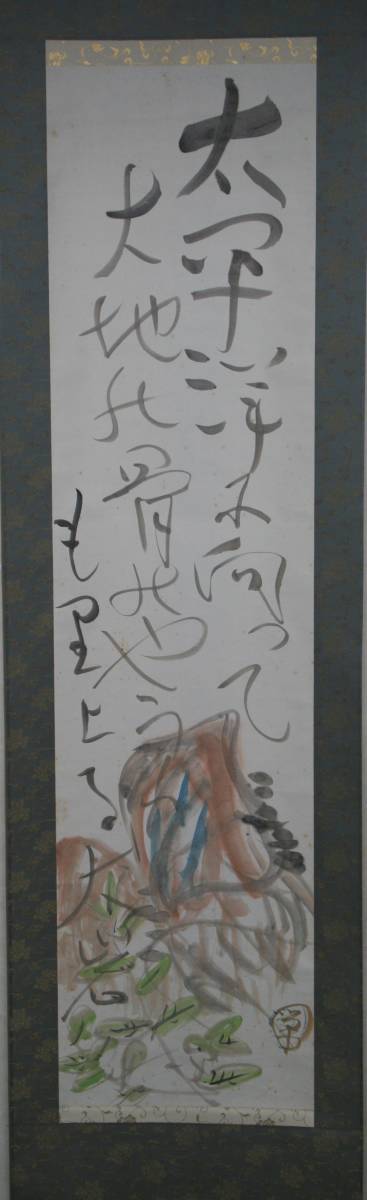 太平洋に向って
大地の骨のやうに
もり上る大岩
草